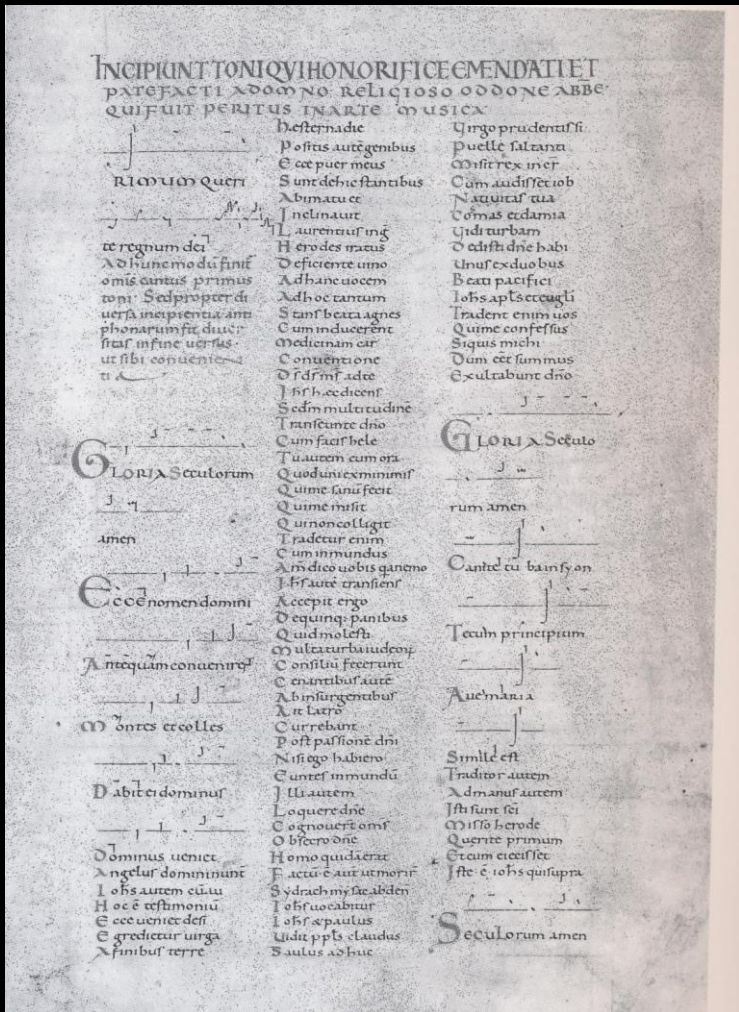 INCIPIUNT TONI QVI HONORIFICE EMENDATI ET
PATEFACTI A DOMNO RELIGIOSO ODDONE ABBE·
QUI FUIT PERITUS IN ARTE MUSICA
RIMUM Queri
te regnum dei
Ad hunc modū finit
omīs cantus primus
toni · Sed propter di
uersa incipientia anti
phonarum fit diuer
sitas in fine uersus ·
ut sibi conuenien
ti
GLORIA Seculorum
amen
Ecce nomen domini
Antequam conuenirēt
Montes et colles
Dabit ei dominus
Dominus ueniet
Angelus domini nunt
Iohs autem cū ui
Hoc ē testimoniū
Ecce ueniet desi
Egredietur uirga
A finibus terre
hesterna die
Positis autē genibus
Ecce puer meus
Sunt de hic stantibus
Inclinauit
Laurentius ing
Herodes iratus
Deficiente uino
Ad hanc uocem
Ad hoc tantum
Stans beata agnes
Cum inducerent
Medicinam car
Conuentione
Ihs hæc dicens
Scdm multitudinē
Transeunte dno
Cum facis hele
Tu autem cum ora
Quod uni ex minimis
Qui me sanū fecit
Qui me misit
Qui non colligit
Tradetur enim
Cum inmundus
Am̄ dico uobis
Ihs autē transiens
Accepit ergo
De quinq; panibus
Quid molesti
Multa turba
Consiliū fecerunt
Cenantibus autē
Ab insurgentibus
Ait latro
Currebant
Post passionē dni
Nisi ego habiero
Euntes in mundū
Illi autem
Loquere dne
Cognouert oms
Obsecro dne
Homo quidā erat
Sydrach mysac abden
Iohs uocabitur
Iohs & paulus
Uidit ppls claudus
Saulus adhuc
Uirgo prudentissi
Puelle saltanti
Misit rex incr
Cum audisset iob
Natiuitas tua
Cosmas et damia
Uidi turbam
Dedisti dne habi
Unus ex duobus
Beati pacifici
Iohs apls et eugli
Tradent enim uos
Qui me confessus
Siquis michi
Dum eēt summus
Exultabunt dno
GLORIA Seculo
rum amen
Canite tū ba in syon
Tecum principium
Aue maria
Simile est
Traditor autem
Ad manus autem
Isti sunt sci
Misso herode
Querite primum
Et cum eiecisset
Iste ē iohs qui supra
Seculorum amen